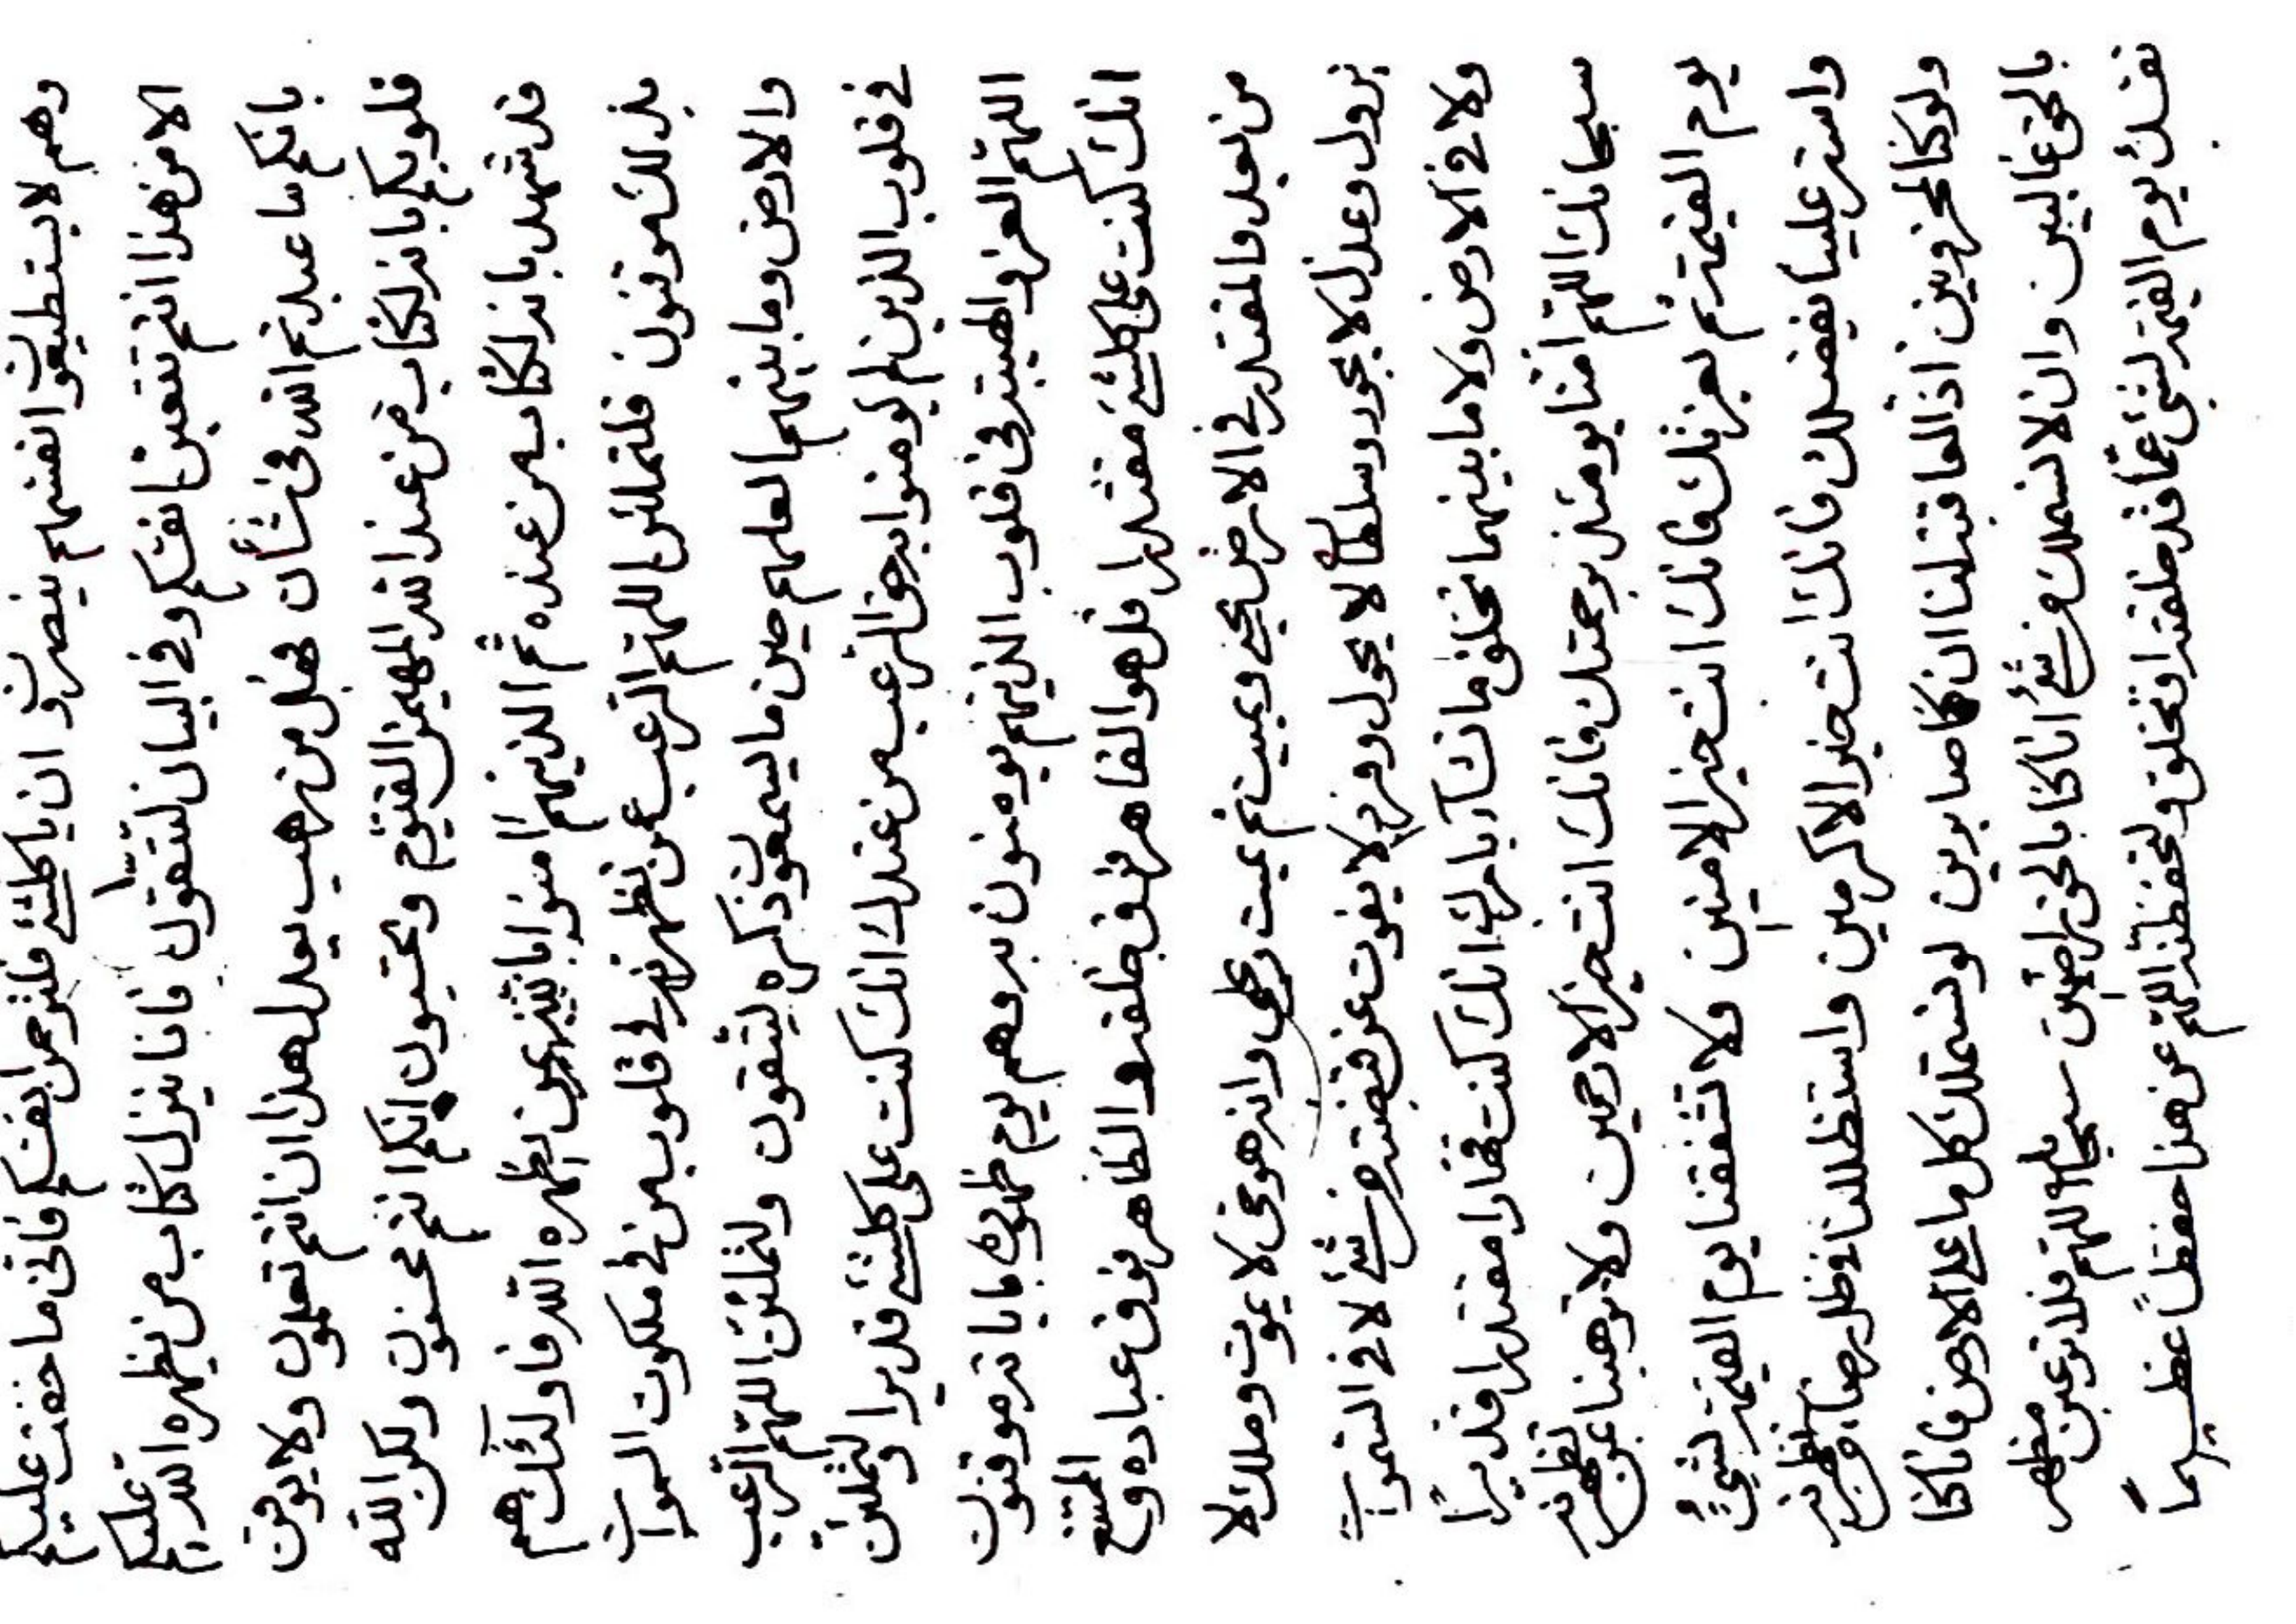 وهم لا يستطيعون انفسهم ينصرون ان يا كلشئ فلترحمن انفسكم فانى ما خفت عليكم
الا من هذا انتم تتعبن انفسكم وفى البيان لتتقون فانا ننزل كتاب من يظهره الله عليكم
بانكم ما عبدتم الله فى شأن فهل من نهيب يعدل هذا ان انتم تعلمون ولا يوقن
قلوبكم بانه لكتاب من عند الله المهيمن القيوم وتحتسبون انكم انتم محسنون ولكن الله
قد شهد بانه لكتابه من عنده ثم الذينهم امنوا بالله ثم بمن يظهره الله فاولئك هم
بذلك موقنون فلتملئن اللهم الرعب عمن تظهرنه فى قلوب من فى ملكوت السموات
والارض وما بينهما لعلهم حين ما يسمعون ذكره ليتقون ولتملئن اللهم الرعب
فى قلوب الذين لم يؤمنوا به حق الرعب من عندك انك كنت على كلشئ قديرا ولتملئن
اللهم العز والهيبة فى قلوب الذينهم يؤمنون به وهم يوم ظهوره باياته موقنون
انك كنت على كلشئ مقتدرا قل هو القاهر فوق خلقه والظاهر فوق عباده والممتنع
من بعد والمقتدر فى الارض يحيى ويميت ثم يميت ويحيى وانه هو حى لا يموت وملك لا
يزول وعدل لا يجور وسلطان لا يحول وفرد لا يفوت عن قبضته من شئ لا فى السموات
ولا فى الارض ولا ما بينهما تخلق ما تشاء بامرك انك كنت قهارا مقتدرا قديرا
سبحانك اللهم امنا يومئذ برحمتك فانك انت خير الارحمين ولا ترهبنا عمن تظهرنه
يوم القيمة ثم بعزتك فانك انت خير الامنين ولا تشفقنا يوم القيمة لشئ
واستر علينا بفضلك فانك انت خير الاكرمين واستظللنا فى ظل رضاء من تظهرنه
ولو كنا لمحزونين اذ العاقبة لنا ان كنا صابرين لو نستملك كل ما على الارض فانا كنا
بالحق غالبين وان لا نستملك من شئ انا كنا بالحق راضين سبحانك اللهم فلا ترعبن مظهر
نفسك يوم القيمة لشئ عما قد خلقته او تخلق ولتحفظنه اللهم عن هذا حفظا عظيما